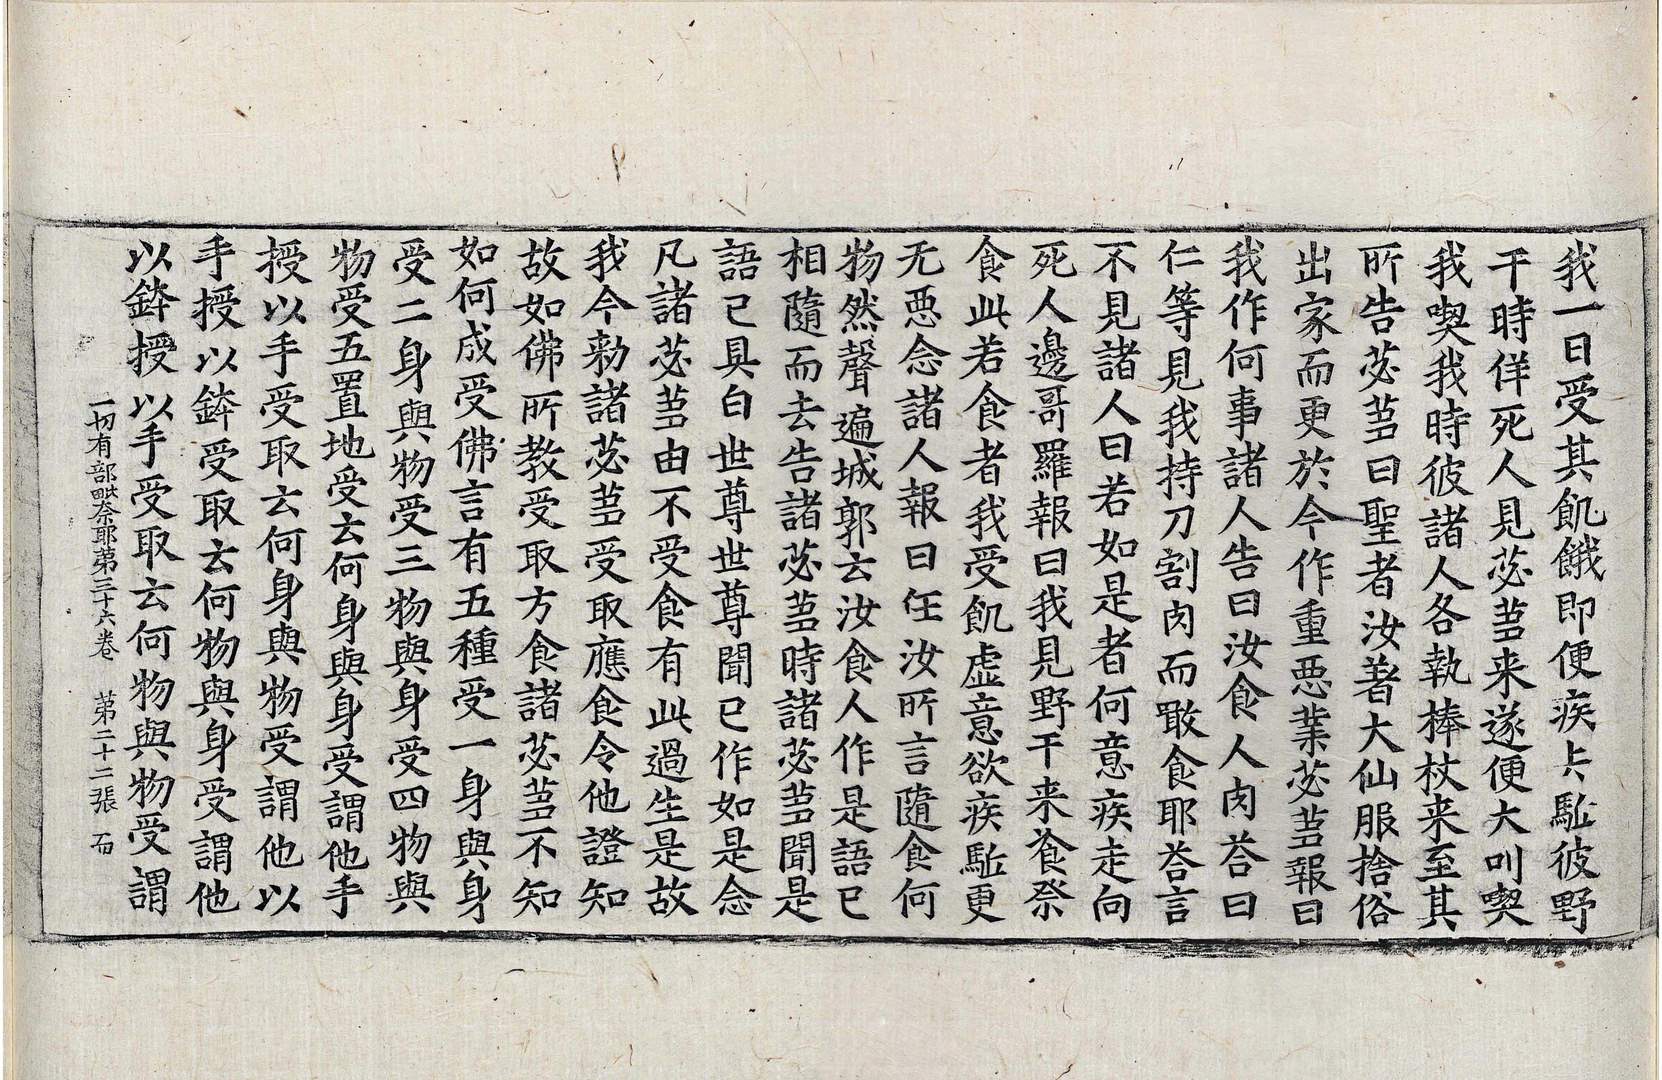 我一日受其飢餓即便疾去駈彼野
干時佯死人見苾蒭来遂便大叫喫
我喫我時彼諸人各執棒杖来至其
所告苾蒭曰聖者汝著大仙服捨俗
出家而更於今作重惡業苾蒭報曰
我作何事諸人告曰汝食人肉荅曰
仁等見我持刀割肉而噉食耶荅言
不見諸人曰若如是者何意疾走向
死人邊哥羅報曰我見野干来飡祭
食此若食者我受飢虛意欲疾駈更
无惡念諸人報曰任汝所言隨食何
物然聲遍城郭云汝食人作是語已
相隨而去告諸苾蒭時諸苾蒭聞是
語已具白世尊世尊聞已作如是念
凡諸苾蒭由不受食有此過生是故
我今勑諸苾蒭受取應食令他證知
故如佛所教受取方食諸苾蒭不知
如何成受佛言有五種受一身與身
受二身與物受三物與身受四物與
物受五置地受云何身與身受謂他手
授以手受取云何身與物受謂他以
手授以鉢受取云何物與身受謂他
以鉢授以手受取云何物與物受謂
一切有部毗奈耶第三十六卷　第二十二張